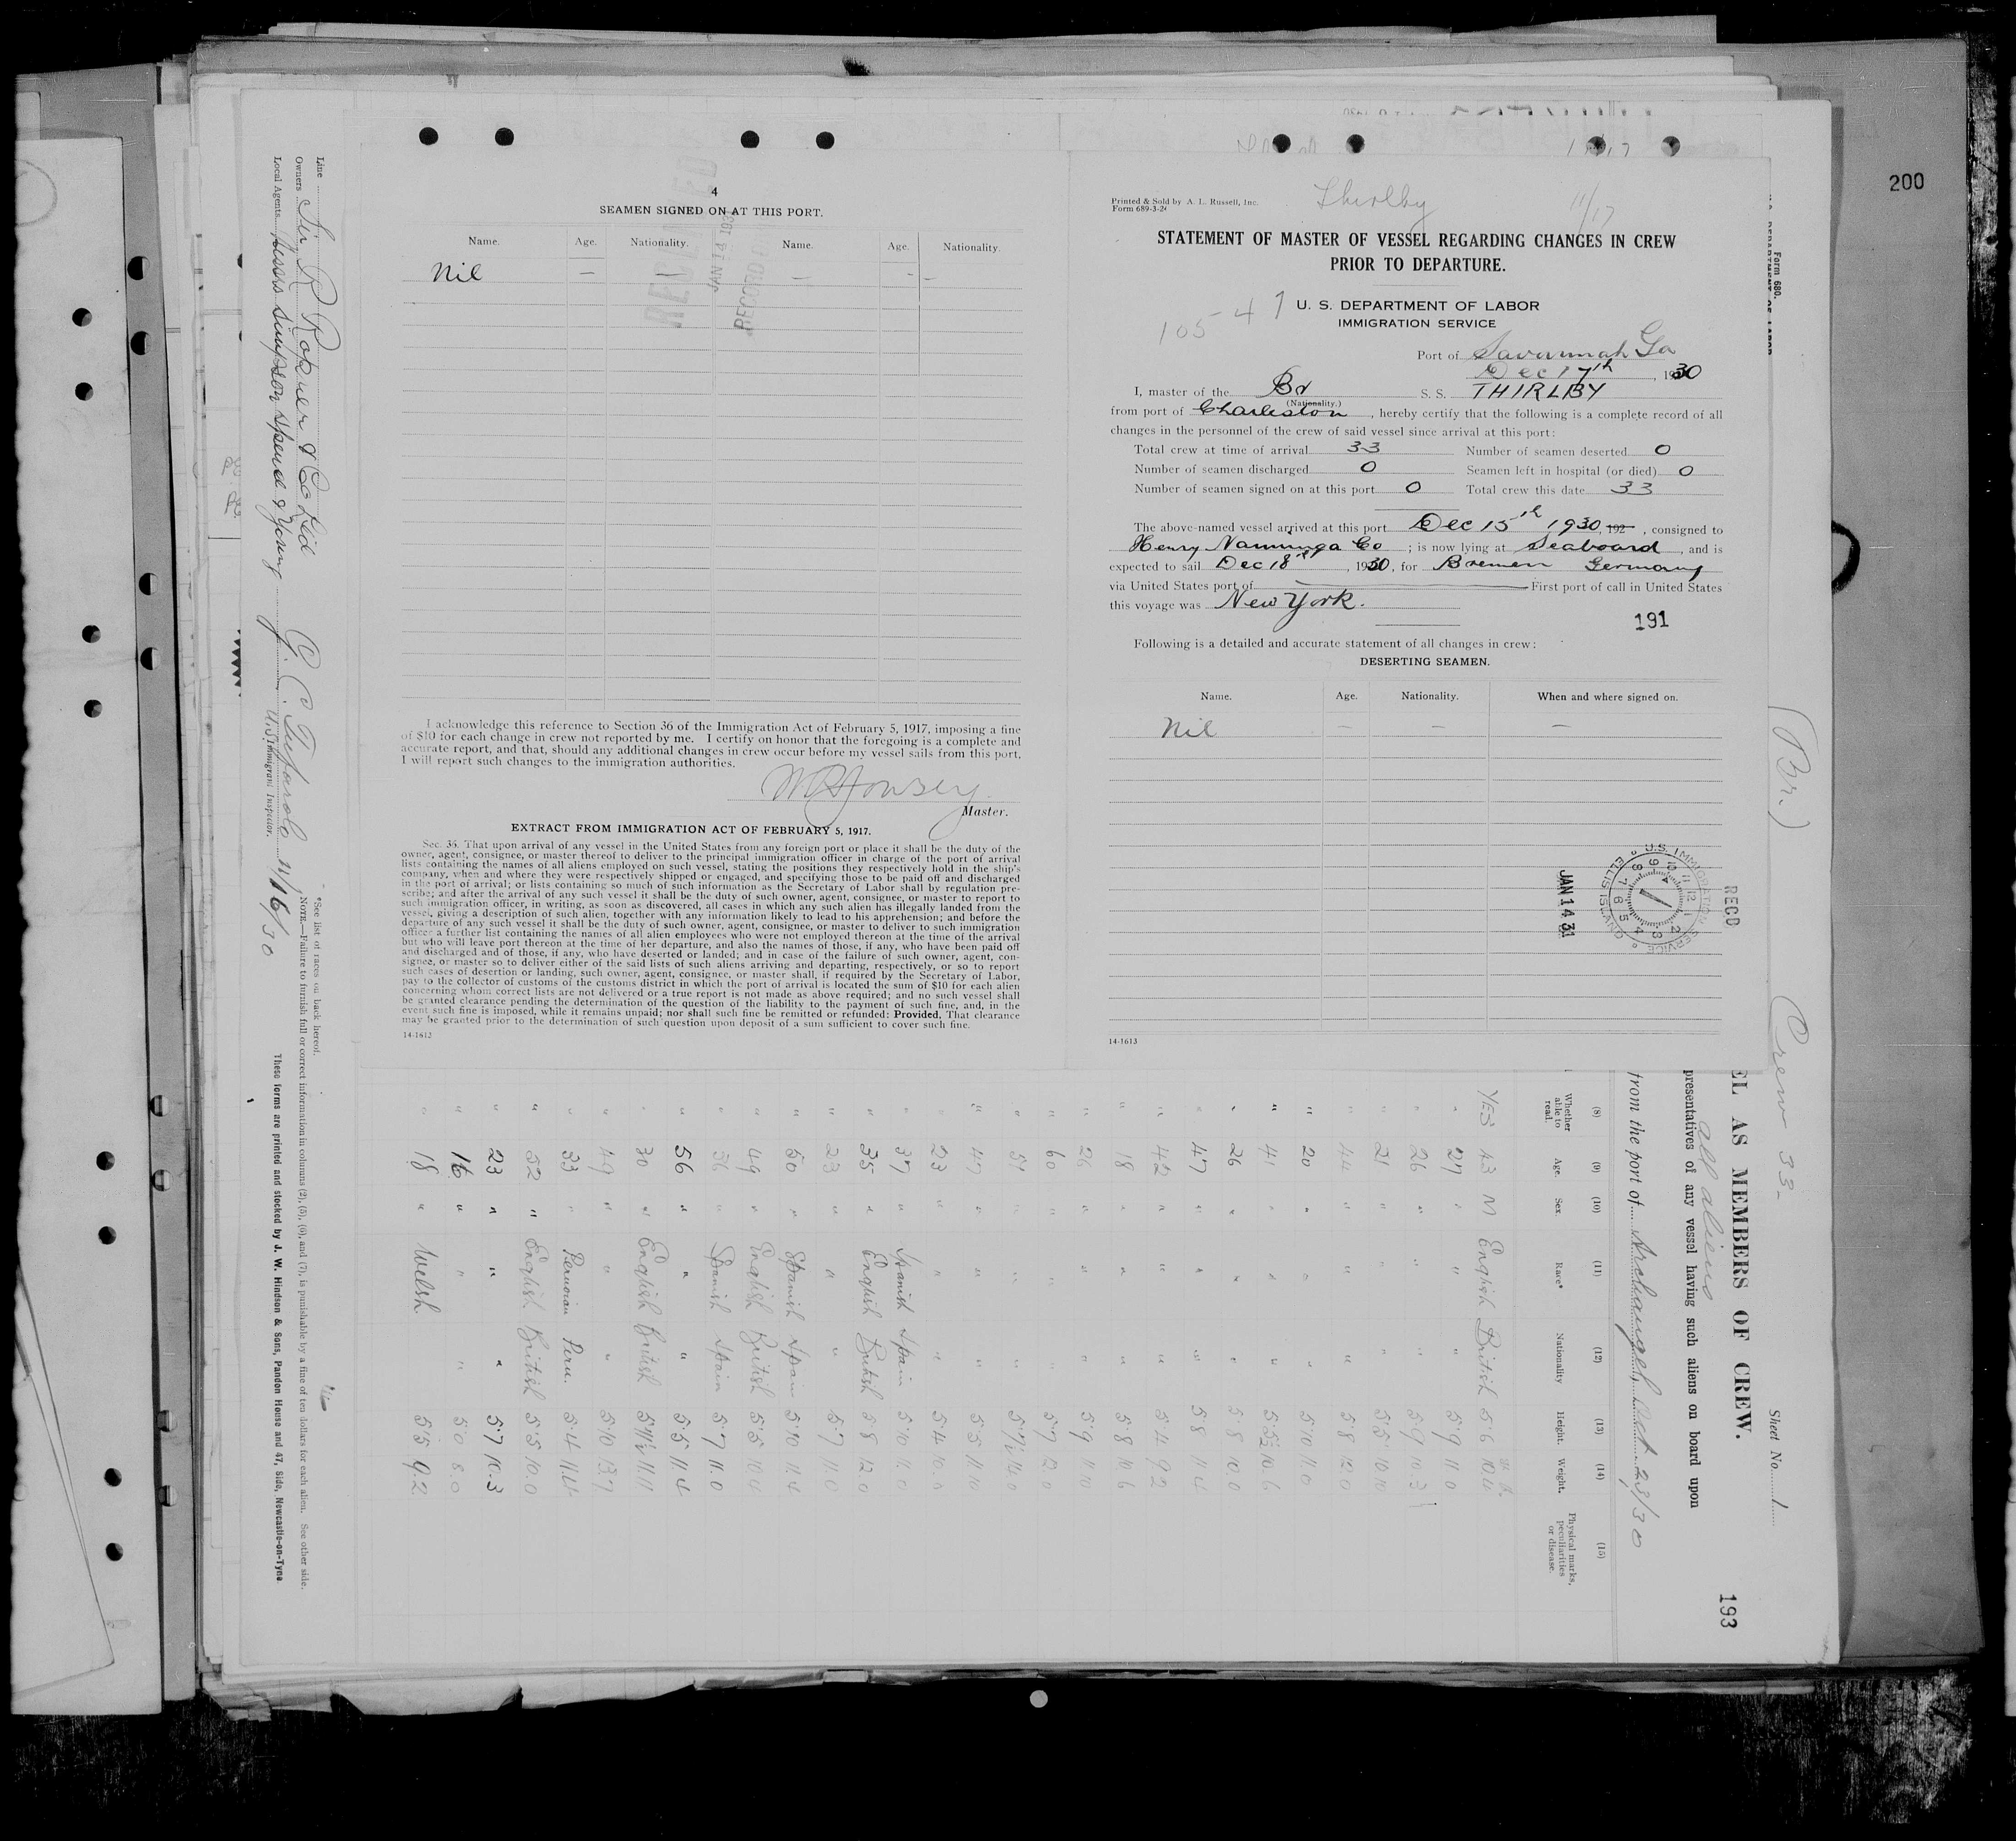 200
4
SEAMEN SIGNED ON AT THIS PORT.
Name. Age. Nationality. Name. Age. Nationality.
Nil — — — - -
I acknowledge this reference to Section 36 of the Immigration Act of February 5, 1917, imposing a fine
of $10 for each change in crew not reported by me. I certify on honor that the foregoing is a complete and
accurate report, and that, should any additional changes in crew occur before my vessel sails from this port,
I will report such changes to the immigration authorities.
Master.
EXTRACT FROM IMMIGRATION ACT OF FEBRUARY 5, 1917.
Sec. 36. That upon arrival of any vessel in the United States from any foreign port or place it shall be the duty of the
owner, agent, consignee, or master thereof to deliver to the principal immigration officer in charge of the port of arrival
lists containing the names of all aliens employed on such vessel, stating the positions they respectively hold in the ship's
company, when and where they were respectively shipped or engaged, and specifying those to be paid off and discharged
in the port of arrival; or lists containing so much of such information as the Secretary of Labor shall by regulation pre-
scribe; and after the arrival of any such vessel it shall be the duty of such owner, agent, consignee, or master to report to
such immigration officer, in writing, as soon as discovered, all cases in which any such alien has illegally landed from the
vessel, giving a description of such alien, together with any information likely to lead to his apprehension; and before the
departure of any such vessel it shall be the duty of such owner, agent, consignee, or master to deliver to such immigration
officer a further list containing the names of all alien employees who were not employed thereon at the time of the arrival
but who will leave port thereon at the time of her departure, and also the names of those, if any, who have been paid off
and discharged and of those, if any, who have deserted or landed; and in case of the failure of such owner, agent, con-
signee, or master so to deliver either of the said lists of such aliens arriving and departing, respectively, or so to report
such cases of desertion or landing, such owner, agent, consignee, or master shall, if required by the Secretary of Labor,
pay to the collector of customs of the customs district in which the port of arrival is located the sum of $10 for each alien
concerning whom correct lists are not delivered or a true report is not made as above required; and no such vessel shall
be granted clearance pending the determination of the question of the liability to the payment of such fine, and, in the
event such fine is imposed, while it remains unpaid; nor shall such fine be remitted or refunded: Provided, That clearance
may be granted prior to the determination of such question upon deposit of a sum sufficient to cover such fine.
14-1613
Printed & Sold by A. L. Russell, Inc.
Form 689-3-24
11/17
STATEMENT OF MASTER OF VESSEL REGARDING CHANGES IN CREW
PRIOR TO DEPARTURE.
U. S. DEPARTMENT OF LABOR
IMMIGRATION SERVICE
105-47
Port of Savannah Ga
Dec 17th, 1930
I, master of the Br S. S. THIRLBY
(Nationality.)
from port of Charleston, hereby certify that the following is a complete record of all
changes in the personnel of the crew of said vessel since arrival at this port:
Total crew at time of arrival 33 Number of seamen deserted 0
Number of seamen discharged 0 Seamen left in hospital (or died) 0
Number of seamen signed on at this port 0 Total crew this date 33
The above-named vessel arrived at this port Dec 15th 1930, 192 , consigned to
Henry Nanninga Co ; is now lying at Seaboard, and is
expected to sail Dec 18th, 1930, for Bremen Germany
via United States port of First port of call in United States
this voyage was New York.
191
Following is a detailed and accurate statement of all changes in crew:
DESERTING SEAMEN.
Name. Age. Nationality. When and where signed on.
Nil — — —
RECD
U.S. IMMIGRATION SERVICE
ELLIS ISLAND
JAN 14 31
14-1613
Form 680.
(Br.) Crew 33-
Sheet No. 1
193
EL AS MEMBERS OF CREW.
all aliens
presentatives of any vessel having such aliens on board upon
from the port of Archangel, Oct 23/30
(8) (9) (10) (11) (12) (13) (14) (15)
Whether able to read. Age. Sex. Race* Nationality Height. Weight. Physical marks, peculiarities or disease.
YES 43 M English British 5 6
" 27 " " " 5 9 11 0
" 26 " " " 5 9 10 3
" 21 " " " 5 5 10 10
" 44 " " " 5 8 12 0
" 20 " " " 5 10 11 0
" 41 " " " 5 5½ 10 6
" 26 " " " 5 8 10 0
" 47 " " " 5 8 11 4
" 42 " " " 5 4 9 2
" 18 " " " 5 8 10 6
" 26 " " " 5 9 11 10
" 60 " " " 5 7 12 0
" 51 " " "
" 47 " " " 5 5 11 10
" 23 " " " 5 4 10 0
" 37 " Spanish Spain 5 10 11 0
" 35 " English British 5 8 12 0
" 23 " " " 5 7 11 0
" 50 " Spanish Spain 5 10 11 4
" 49 " English British 5 5 10 4
" 36 " Spanish Spain 5 7 11 0
" 56 " " " 5 5 11 4
" 30 " English British 5 11½ 11 11
" 49 " " " 5 10 13 7
" 33 " Peruvian Peru. 5 4 11 4
" 52 " English British 5 5 10 0
" 23 " " " 5 7 10 3
" 16 " " " 5 0 8 0
" 18 " Welsh 5 5 9 2
*See list of races on back hereof.
NOTE.—Failure to furnish full or correct information in columns (2), (5), (6), and (7), is punishable by a fine of ten dollars for each alien. See other side.
Line
Owners Sir R Ropner & Co Ltd
Local Agents Messrs Simpson Spence & Young
U.S. Immigrant Inspector.
11/16/30
These forms are printed and stocked by J. W. Hindson & Sons, Pandon House and 47, Side, Newcastle-on-Tyne